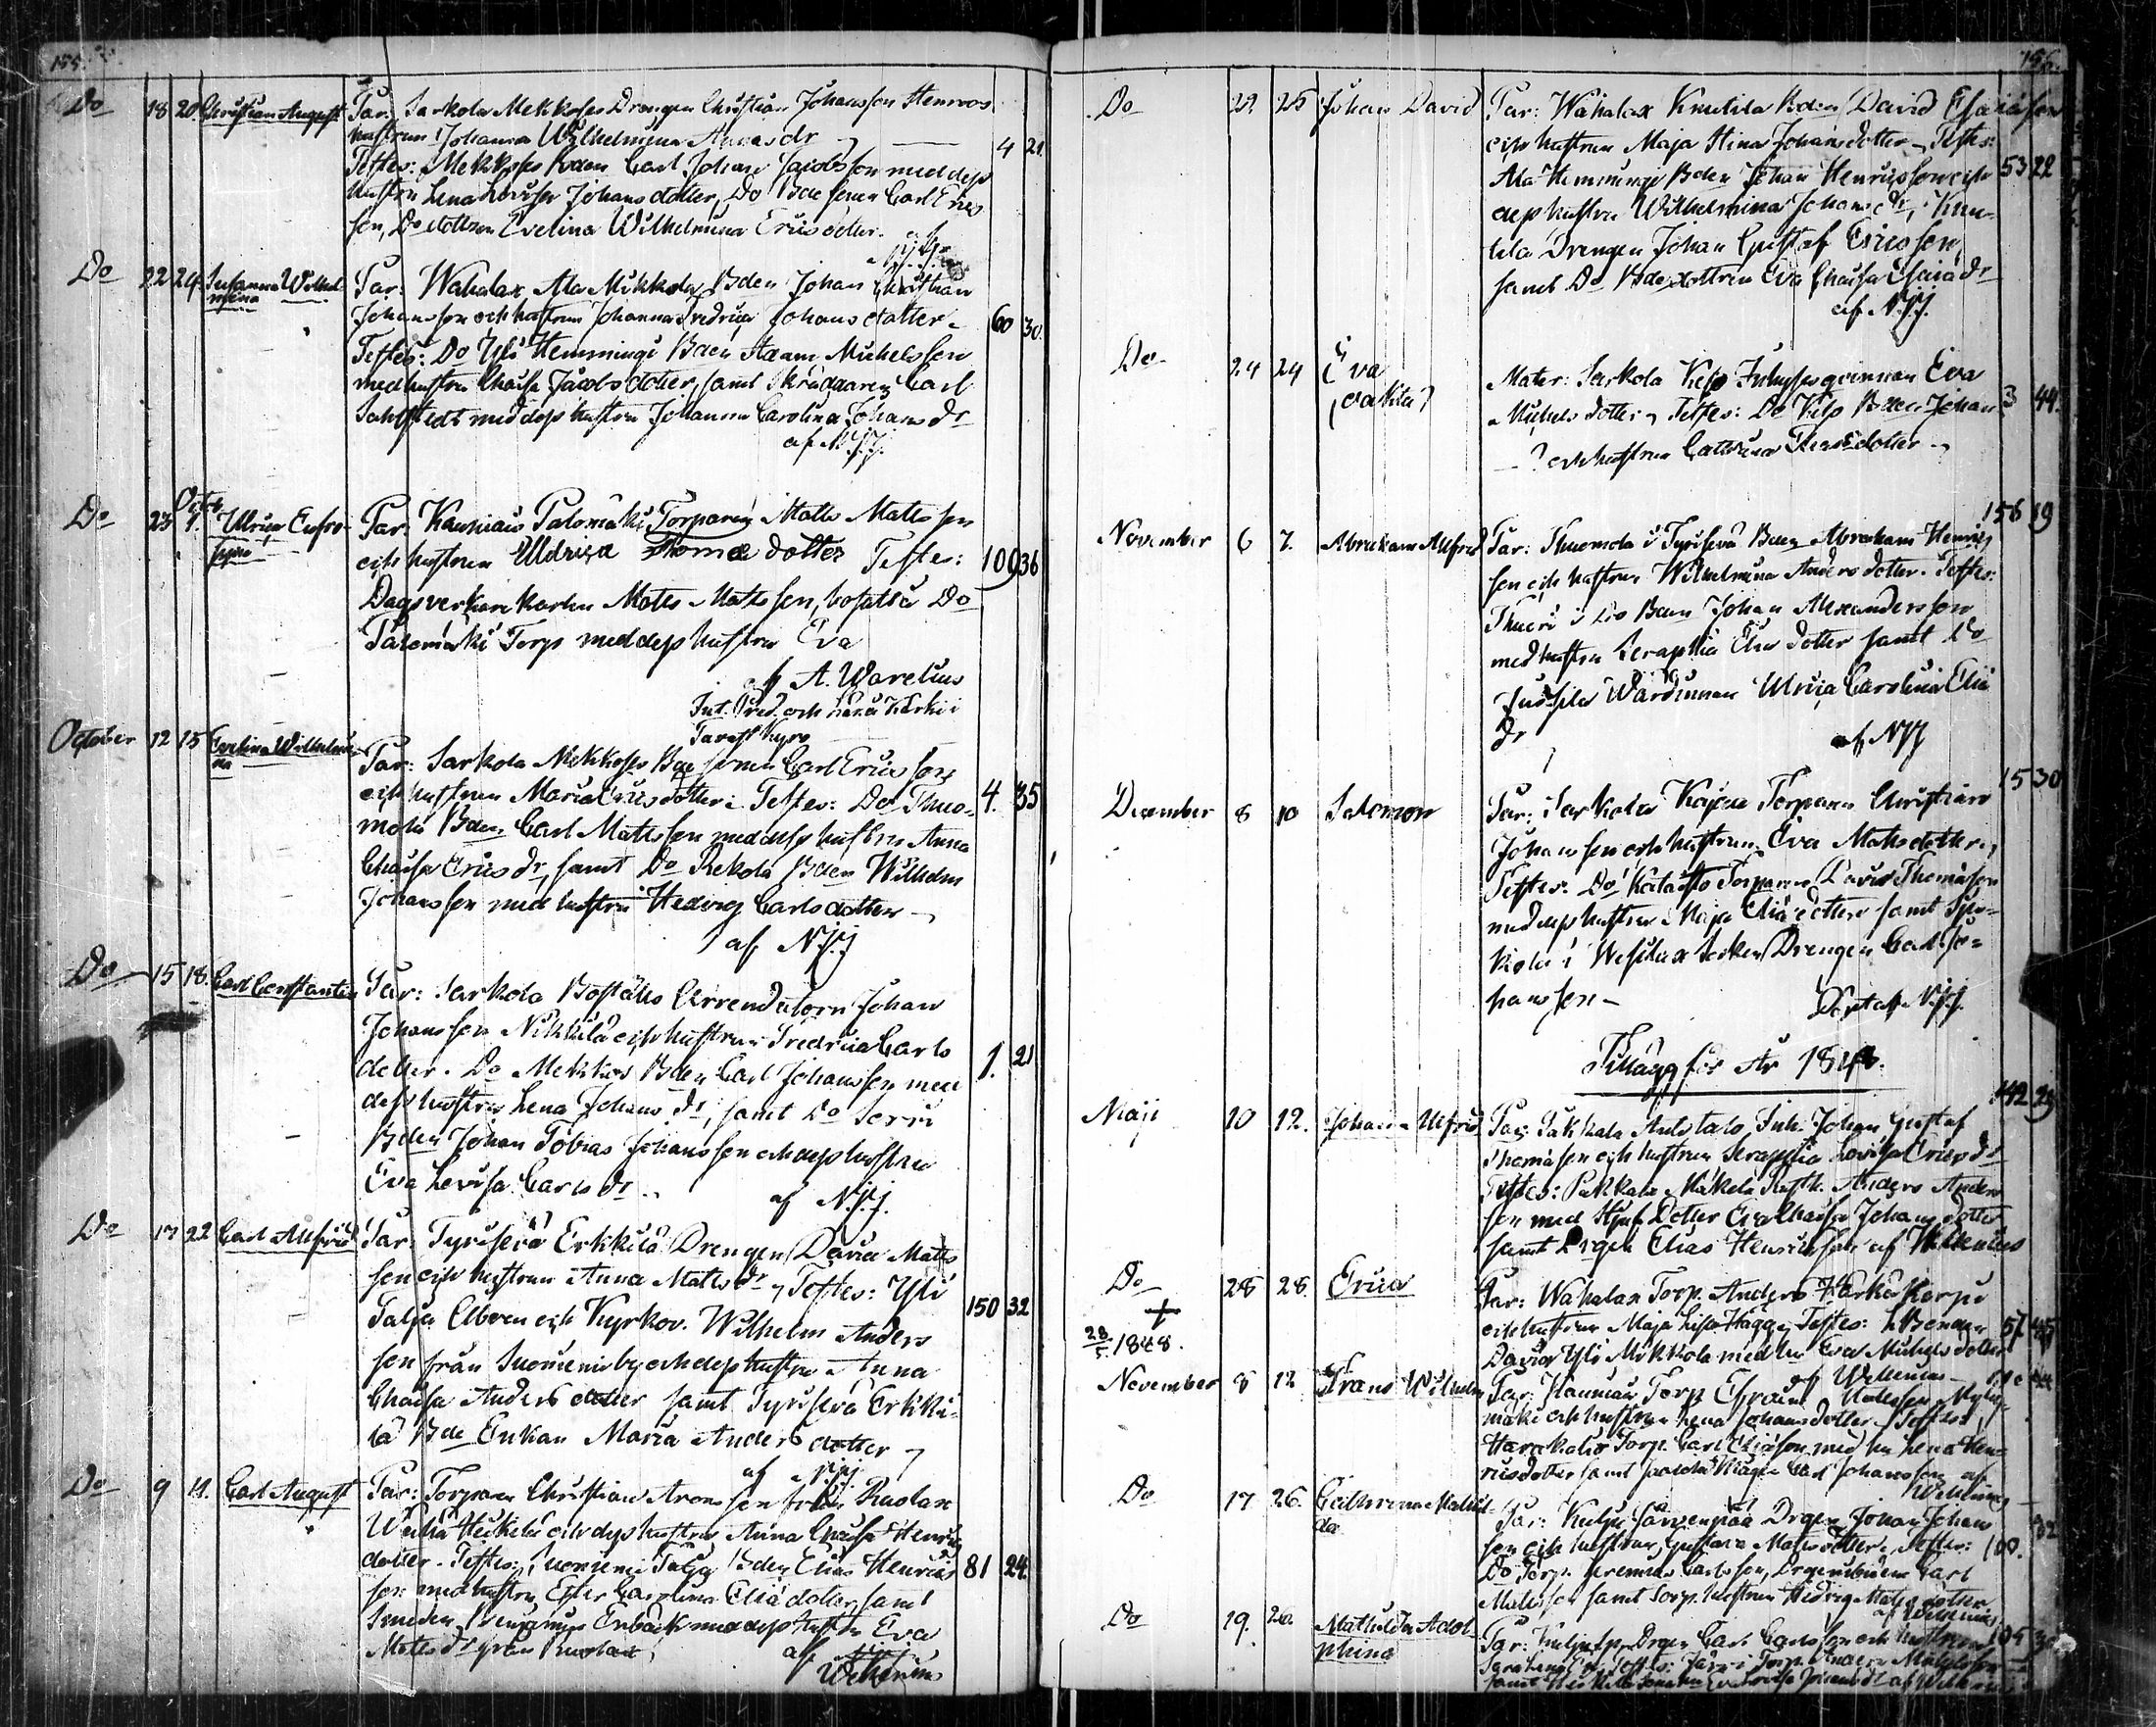 155.
Do 18 20 Christian August Par. Sarkola Mekkosen Drengen Christian Johansson Stenroos
hustrun Johanna Wilhelmina dr 4 21.
Testes: Mekkosen Bden Carl Johan Jacobsson med dess
hustru Lena Lovisa Johansdotter, Do Bde sonen Carl Erics
son, Do dottren Evelina Wilhelmina Ericsdotter.
af
Do 22 24. Susanna Wilhel-
mina
Par: Wahalax Ala Mikkola Bden Johan Christian
Johansson och hustrun Johanna Fredrica Johansdotter. 60 30.
Testes: Do Yli Hemmingi Bden Adam Michelsson
med hustru Lhaisa Jacobsdotter, samt Skräddaren Carl
Sahlstedt med dess hustru Johanna Carolina Johansdr
af N.J.J.
Do 23 Octob. 1. Ulrica Eufro-
syne
Par: Kauniais Palomäki Torparen Matts Mattsson
och hustrun Uldrica Thomæ dotter Testes: 109 36
Dagsverkare karlen Matts Mattsson, bosatt å Do
Palomäki Torp med dess hustru Eva
af A. Warelius
Tavast Kyro
October 12 15 Evelina Wilhelmi-
na
Par: Sarkola Mekkosen Bde sonen Carl Ericsson
och hustrun Maria Ericsdotter. Testes: Do Thuo- 4. 35
mola Bden Carl Mattsson med dess hustru Anna
Lhaisa Ericsdr, samt Do Rekola Bden Wilhelm
Johansson med hustru Hedvig Carlsdotter
af N.J.J
Do 15 18. Carl Constantin Par: Sarkola Boställs Arrendatorn Johan
Johansson Nikkilä och hustrun Fredrica Carls
dotter. Do Mekkos Bden Carl Johansson med 1. 21
dess hustru Lena Johansdr, samt Do Sorri
Bden Johan Tobias Johansson och dess hustru
Eva Lovisa Carlsdr. af N.J.J.
Do 17 22 Carl Alfrid Par: Tyrisevä Erkkilä Drengen David Matts
son och hustrun Anna Mattsdr, Testes: Yli
Talja Åboen och Kyrkov. Wilhelm Anders 150 32
son från Suomenis by och dess hustru Anna
Lhaisa Andersdotter samt Tyrisevä Erkki-
lä Bde Enkan Maria Andersdotter
af N.J.J.
Do 9 11. Carl August Par: Torparen Christian Aronsson från Ruolax
Wähä Heikkilä och dess hustru Anna Lhaisa Henrics
dotter. Testes: Suomenis Talja Bden Elias Henrics 81 24.
son med hustru Ester Carolina Eliædotter samt
Smeden Benjamin Enbäck med dess hustru Eva
Mattsdr från Ruolax, af
Wellenius
156.
Do 22. 25 Johan David Par: Wahalax Knutila Bden David Esaiæson
och hustrun Maja Stina Johansdotter. Testes:
Ala Hemmingi Bden Johan Henricsson och 53 22
dess hustru Wilhelmina Johansdr, Knu-
tila Drengen Johan Gustaf Ericsson
samt Do Bde dottren Eva Lhaisa Esaiædr
af N.J.J.
Do 24 24 Eva
(oäkta)
Mater: Sarkola Kelp Inhysesqvinnan Eva
Michelsdotter, Testes: Do Kelp Bden Johan 3 44.
— ? och hustrun Cathrina Thomædotter.
158 19
November 6 7. Abraham Alfred Par: Thuomola i Tyrisevä Bden Abraham Henrics
son och hustrun Wilhelmina Andersdotter. Testes:
Thuori i Do Bden Johan Alexandersson
med hustru Seraphia Eliædotter samt Do
Jussila Wärdinnan Ulrica Carolina Eliæ
dr af NJJ
15 30
December 8 10 Salomon Par: Sarkola Kajan Torparen Christian
Johansson och hustrun Eva Mattsdotter,
Testes: Do Katajisto Torparen David Thomæson
med dess hustru Maja Eliædotter samt
kola i Wesilax Socken Drengen Carl Jo-
hansson. Döpt af N.J.J.
Tillägg för År 1848.
142 29
Maji 10 12. Johan Alfrid Par: Pakkala Anttitalo Inh. Johan Gustaf
Thomæson och hustrun Seraphia Lovisa Ericsdr
Testes: Pakkala Mäkelä Rusth. Anders Anders
son med Styfdotter Eva Lhaisa Johansdotter
samt Drgen Elias Henricsson af Wellenius
Do 28 28. Erica
+
28/5 1848.
Par: Wahalax Torp. Anders Härkäkorpi
och hustrun Maja Lisa Hägg, Testes: L Bonden 57 45
David Yli Mikkola med hu Eva Michelsdotter
af Wellenius
November 8 12 Frans Wilhelm Par: Kauniais Torp Efraim Mattsson Mylly-
mäki och hustrun Lena Johansdotter. Testes:
Harakalio Torp. Carl Eliæson med hu Lena Hen-
ricsdotter samt Carl Johansson af
Wellenius
Do 17 26. Cathrina Mathil-
da
Par: Kulju Sarvenpää Drgen Johan Johans
son och hustrun Gustava Mattsdotter. Testes: 100. 32
Do Torp. Jeremias Carlsson, Carl
Mattsson samt Torp. hustrun Hedvig Mattsdotter
af Wellenius
Do 19. 26. Mathilda Adol-
phina
Par: Kulju Drgen Carl Carlsson och hustrun 104
Sara Lena Testes: Torp. Anders
samt af Wellenius